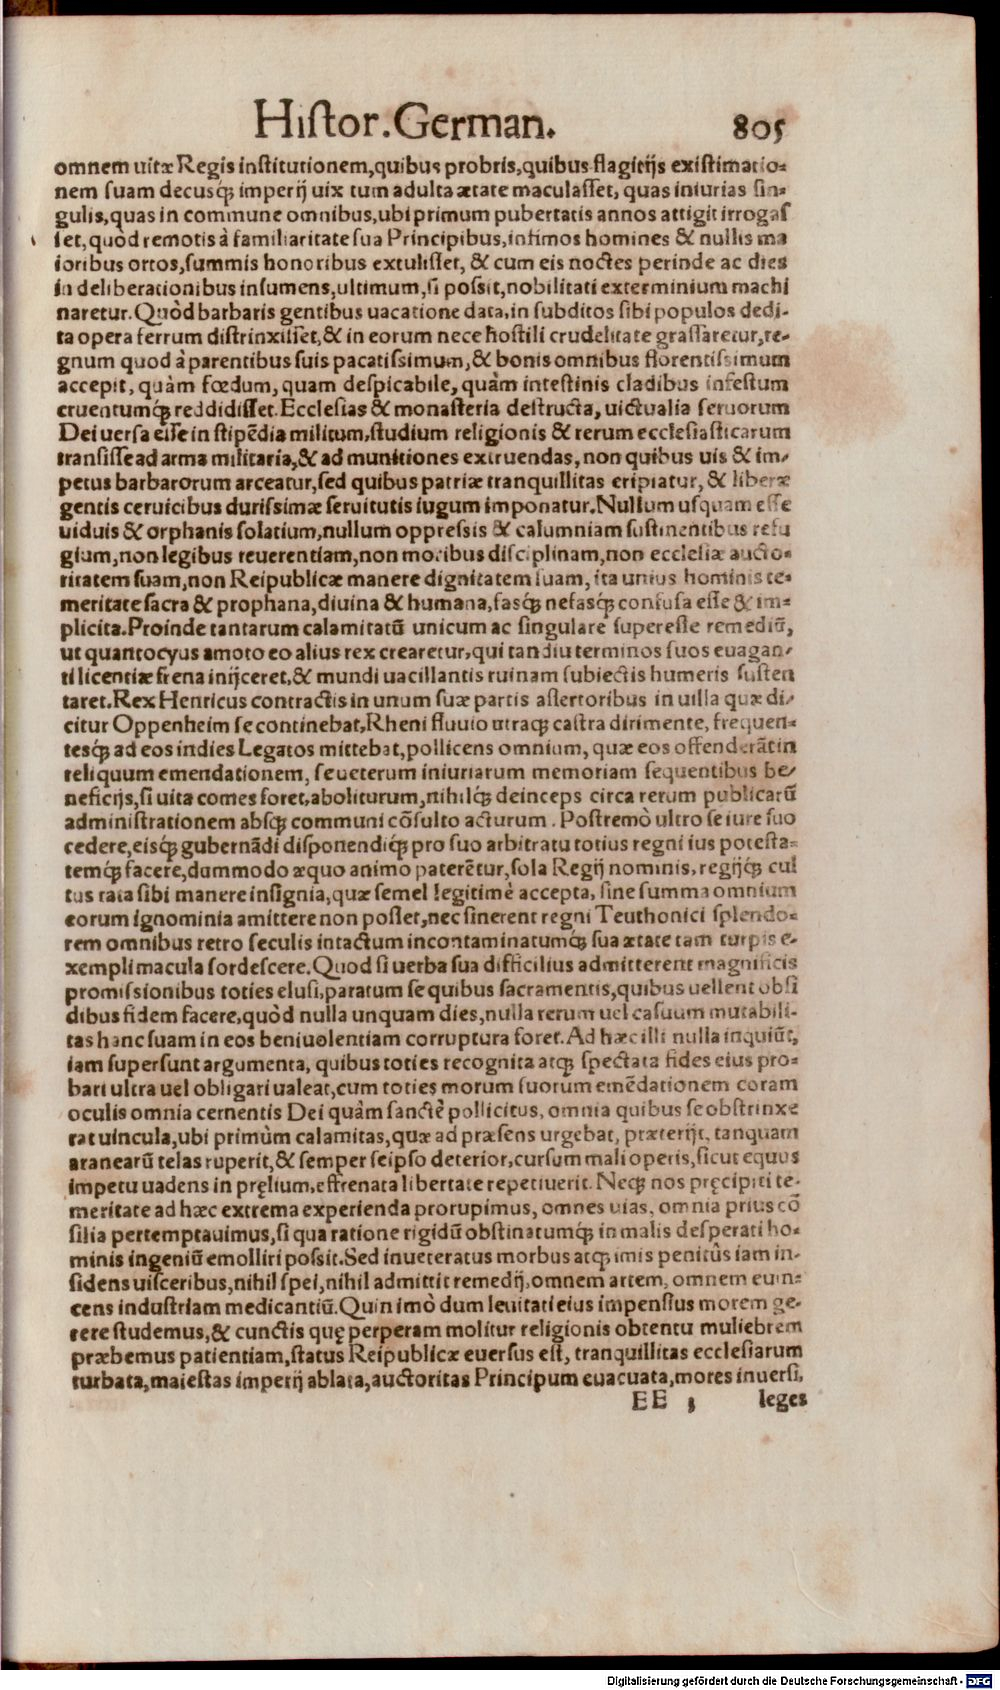 Histor. German. 805
omnem uitæ Regis institutionem, quibus probris, quibus flagitijs existimatio-
nem suam decusq́; imperij uix tum adulta ætate maculasset, quas iniurias sin-
gulis, quas in commune omnibus, ubi primum pubertatis annos attigit irrogas
set, quòd remotis à familiaritate sua Principibus, infimos homines & nullis ma
ioribus ortos, summis honoribus extulisset, & cum eis noctes perinde ac dies
in deliberationibus insumens, ultimum, si possit, nobilitati exterminium machi
naretur. Quòd barbaris gentibus uacatione data, in subditos sibi populos dedi-
ta opera ferrum distrinxisset, & in eorum nece hostili crudelitate grassaretur, re-
gnum quod à parentibus suis pacatissimum, & bonis omnibus florentissimum
accepit, quàm fœdum, quam despicabile, quàm intestinis cladibus infestum
cruentumq́; reddidisset. Ecclesias & monasteria destructa, uictualia seruorum
Dei uersa esse in stipẽdia militum, studium religionis & rerum ecclesiasticarum
transisse ad arma militaria, & ad munitiones extruendas, non quibus uis & im-
petus barbarorum arceatur, sed quibus patriæ tranquillitas eripiatur, & liberæ
gentis ceruicibus durissimæ seruitutis iugum imponatur. Nullum usquam esse
uiduis & orphanis solatium, nullum oppressis & calumniam sustinentibus refu
gium, non legibus reuerentiam, non moribus disciplinam, non ecclesiæ aucto-
ritatem suam, non Reipublicæ manere dignitatem suam, ita unius hominis te-
meritate sacra & prophana, diuina & humana, fasq́; nefasq́; confusa esse & im-
plicita. Proinde tantarum calamitatũ unicum ac singulare superesse remediũ,
ut quantocyus amoto eo alius rex crearetur, qui tandiu terminos suos euagan-
ti licentiæ frena inijceret, & mundi uacillantis ruinam subiectis humeris susten
taret. Rex Henricus contractis in unum suæ partis assertoribus in uilla quæ di-
citur Oppenheim se continebat, Rheni fluuio utraq; castra dirimente, frequen-
tesq́; ad eos indies Legatos mittebat, pollicens omnium, quæ eos offenderãt in
reliquum emendationem, se ueterum iniuriarum memoriam sequentibus be-
neficijs, si uita comes foret, aboliturum, nihilq́; deinceps circa rerum publicarũ
administrationem absq; communi cõsulto acturum. Postremò ultro se iure suo
cedere, eisq́; gubernãdi disponendiq́; pro suo arbitratu totius regni ius potesta-
temq́; facere, dummodo æquo animo paterẽtur, sola Regij nominis, regijq́; cul
tus rata sibi manere insignia, quæ semel legitimè accepta, sine summa omnium
eorum ignominia amittere non posset, nec sinerent regni Teuthonici splendo-
rem omnibus retro seculis intactum incontaminatumq́; sua ætate tam turpis e-
xempli macula sordescere. Quod si uerba sua difficilius admitterent magnificis
promissionibus toties elusi, paratum se quibus sacramentis, quibus uellent obsi
dibus fidem facere, quòd nulla unquam dies, nulla rerum uel casuum mutabili-
tas hanc suam in eos beniuolentiam corruptura foret. Ad hæc illi nulla inquiũt,
iam supersunt argumenta, quibus toties recognita atq; spectata fides eius pro-
bari ultra uel obligari ualeat, cum toties morum suorum emẽdationem coram
oculis omnia cernentis Dei quàm sanctè pollicitus, omnia quibus se obstrinxe
rat uincula, ubi primùm calamitas, quæ ad præsens urgebat, præterijt, tanquam
aranearũ telas ruperit, & semper seipso deterior, cursum mali operis, sicut equus
impetu uadens in pręlium, effrenata libertate repetiuerit. Neq; nos pręcipiti te-
meritate ad hæc extrema experienda prorupimus, omnes uias, omnia prius cõ
silia pertemptauimus, si qua ratione rigidũ obstinatumq́; in malis desperati ho-
minis ingeniũ emolliri possit. Sed inueteratus morbus atq; imis penitùs iam in-
sidens uisceribus, nihil spei, nihil admittit remedij, omnem artem, omnem euin-
cens industriam medicantiũ. Quin imò dum leuitati eius impensius morem ge-
rere studemus, & cunctis quę perperam molitur religionis obtentu muliebrem
præbemus patientiam, status Reipublicæ euersus est, tranquillitas ecclesiarum
turbata, maiestas imperij ablata, auctoritas Principum euacuata, mores inuersi,
EE 3 leges
Digitalisierung gefördert durch die Deutsche Forschungsgemeinschaft - DFG